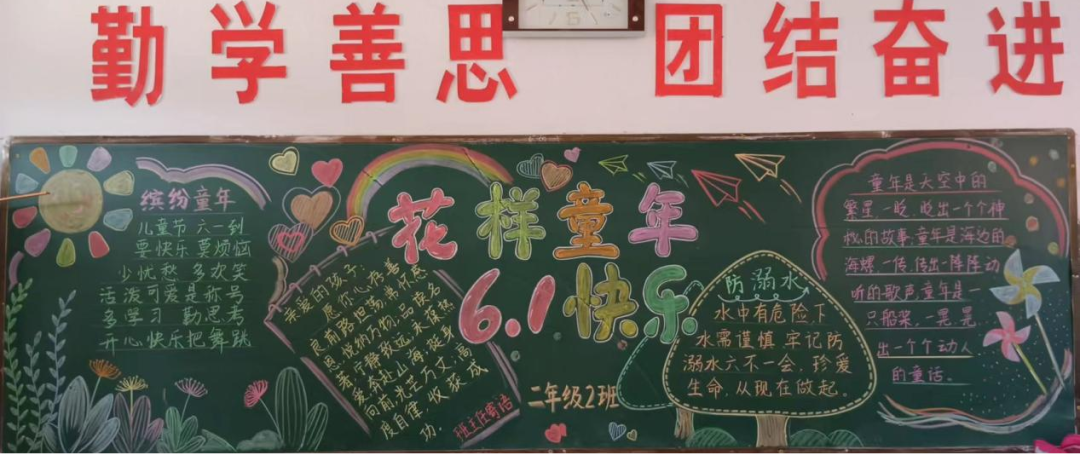 勤学善思 团结奋进
缤纷童年
儿童节 六一到
要快乐 莫烦恼
少忧愁 多欢笑
活泼可爱是称号
多学习 勤思考
开心快乐把舞跳
亲爱的孩子:
愿你心存善
良前路坦荡常怀感
恩悦纳万物,品读名
著宁静致远,未来你
爱奔赴山海,挺身
向前光芒万丈,高
度自律,收获成
功。
班主任寄语
花样童年
6.1快乐
二年级2班
防溺水
水中有危险下
水需谨慎 牢记防
溺水六不一会,珍爱
生命,从现在做起。
童年是天空中的
繁星,一眨,眨出一个个神
秘的故事,童年是海边的
海螺,一传,传出一阵阵动
听的歌声,童年是一
只船桨,一晃,晃
出一个个动人
的童话。